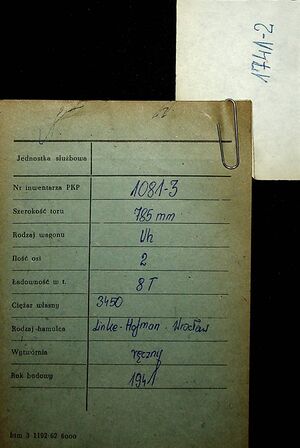 1741-2
Jednostka służbowa
Nr inwentarza PKP 1081-3
Szerokość toru 785 mm
Rodzaj wagonu Uh
Ilość osi 2
Ładowność w t. 8 T
Ciężar własny 3450
Rodzaj-hamulca Linke-Hofman. Wrocław
Wytwórnia ręczny
Rok budowy 1941
3 1192 62 6000